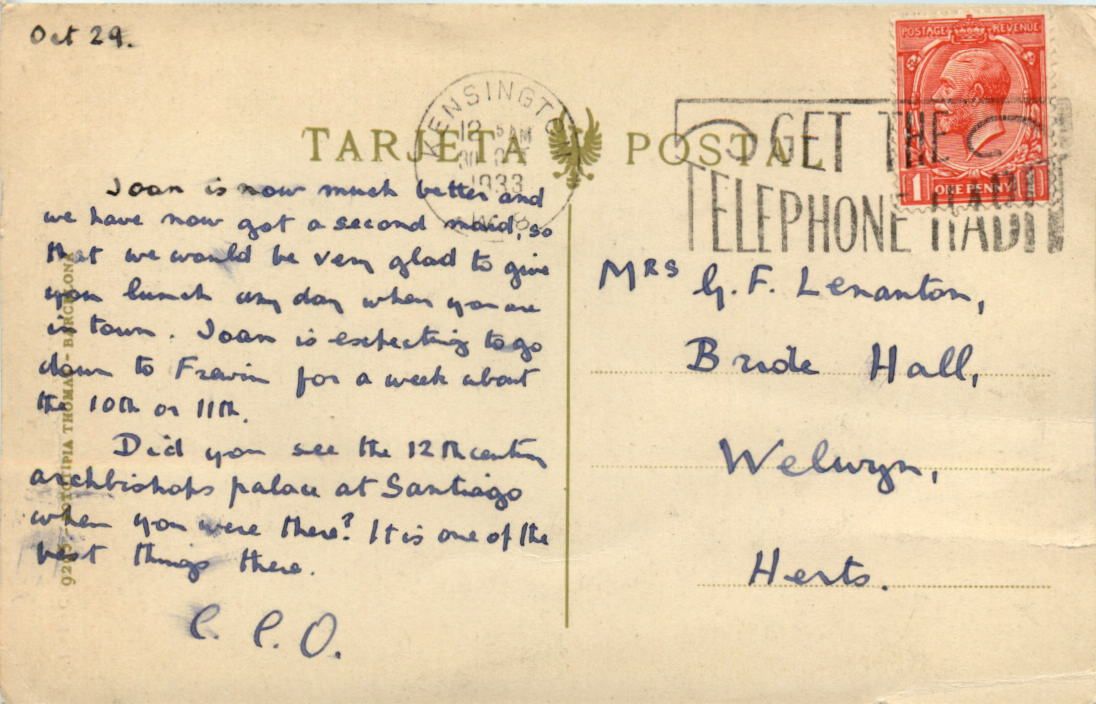 Oct 29.
TARJETA POSTAL
KENSINGTON
12 AM
30
1933
GET THE
TELEPHONE HABIT
POSTAGE REVENUE
1 ONE PENNY
Joan is now much better and
we have now got a second maid, so
that we would be very glad to give
you lunch any day when you are
in town. Joan is expecting to go
down to Frewin for a week about
the 10th or 11th.
Did you see the 12th century
archbishops palace at Santiago
when you were there? It is one of the
best things there.
Mrs G. F. Lenanton,
Bride Hall,
Welwyn,
Herts.
THOMAS - BARCELONA